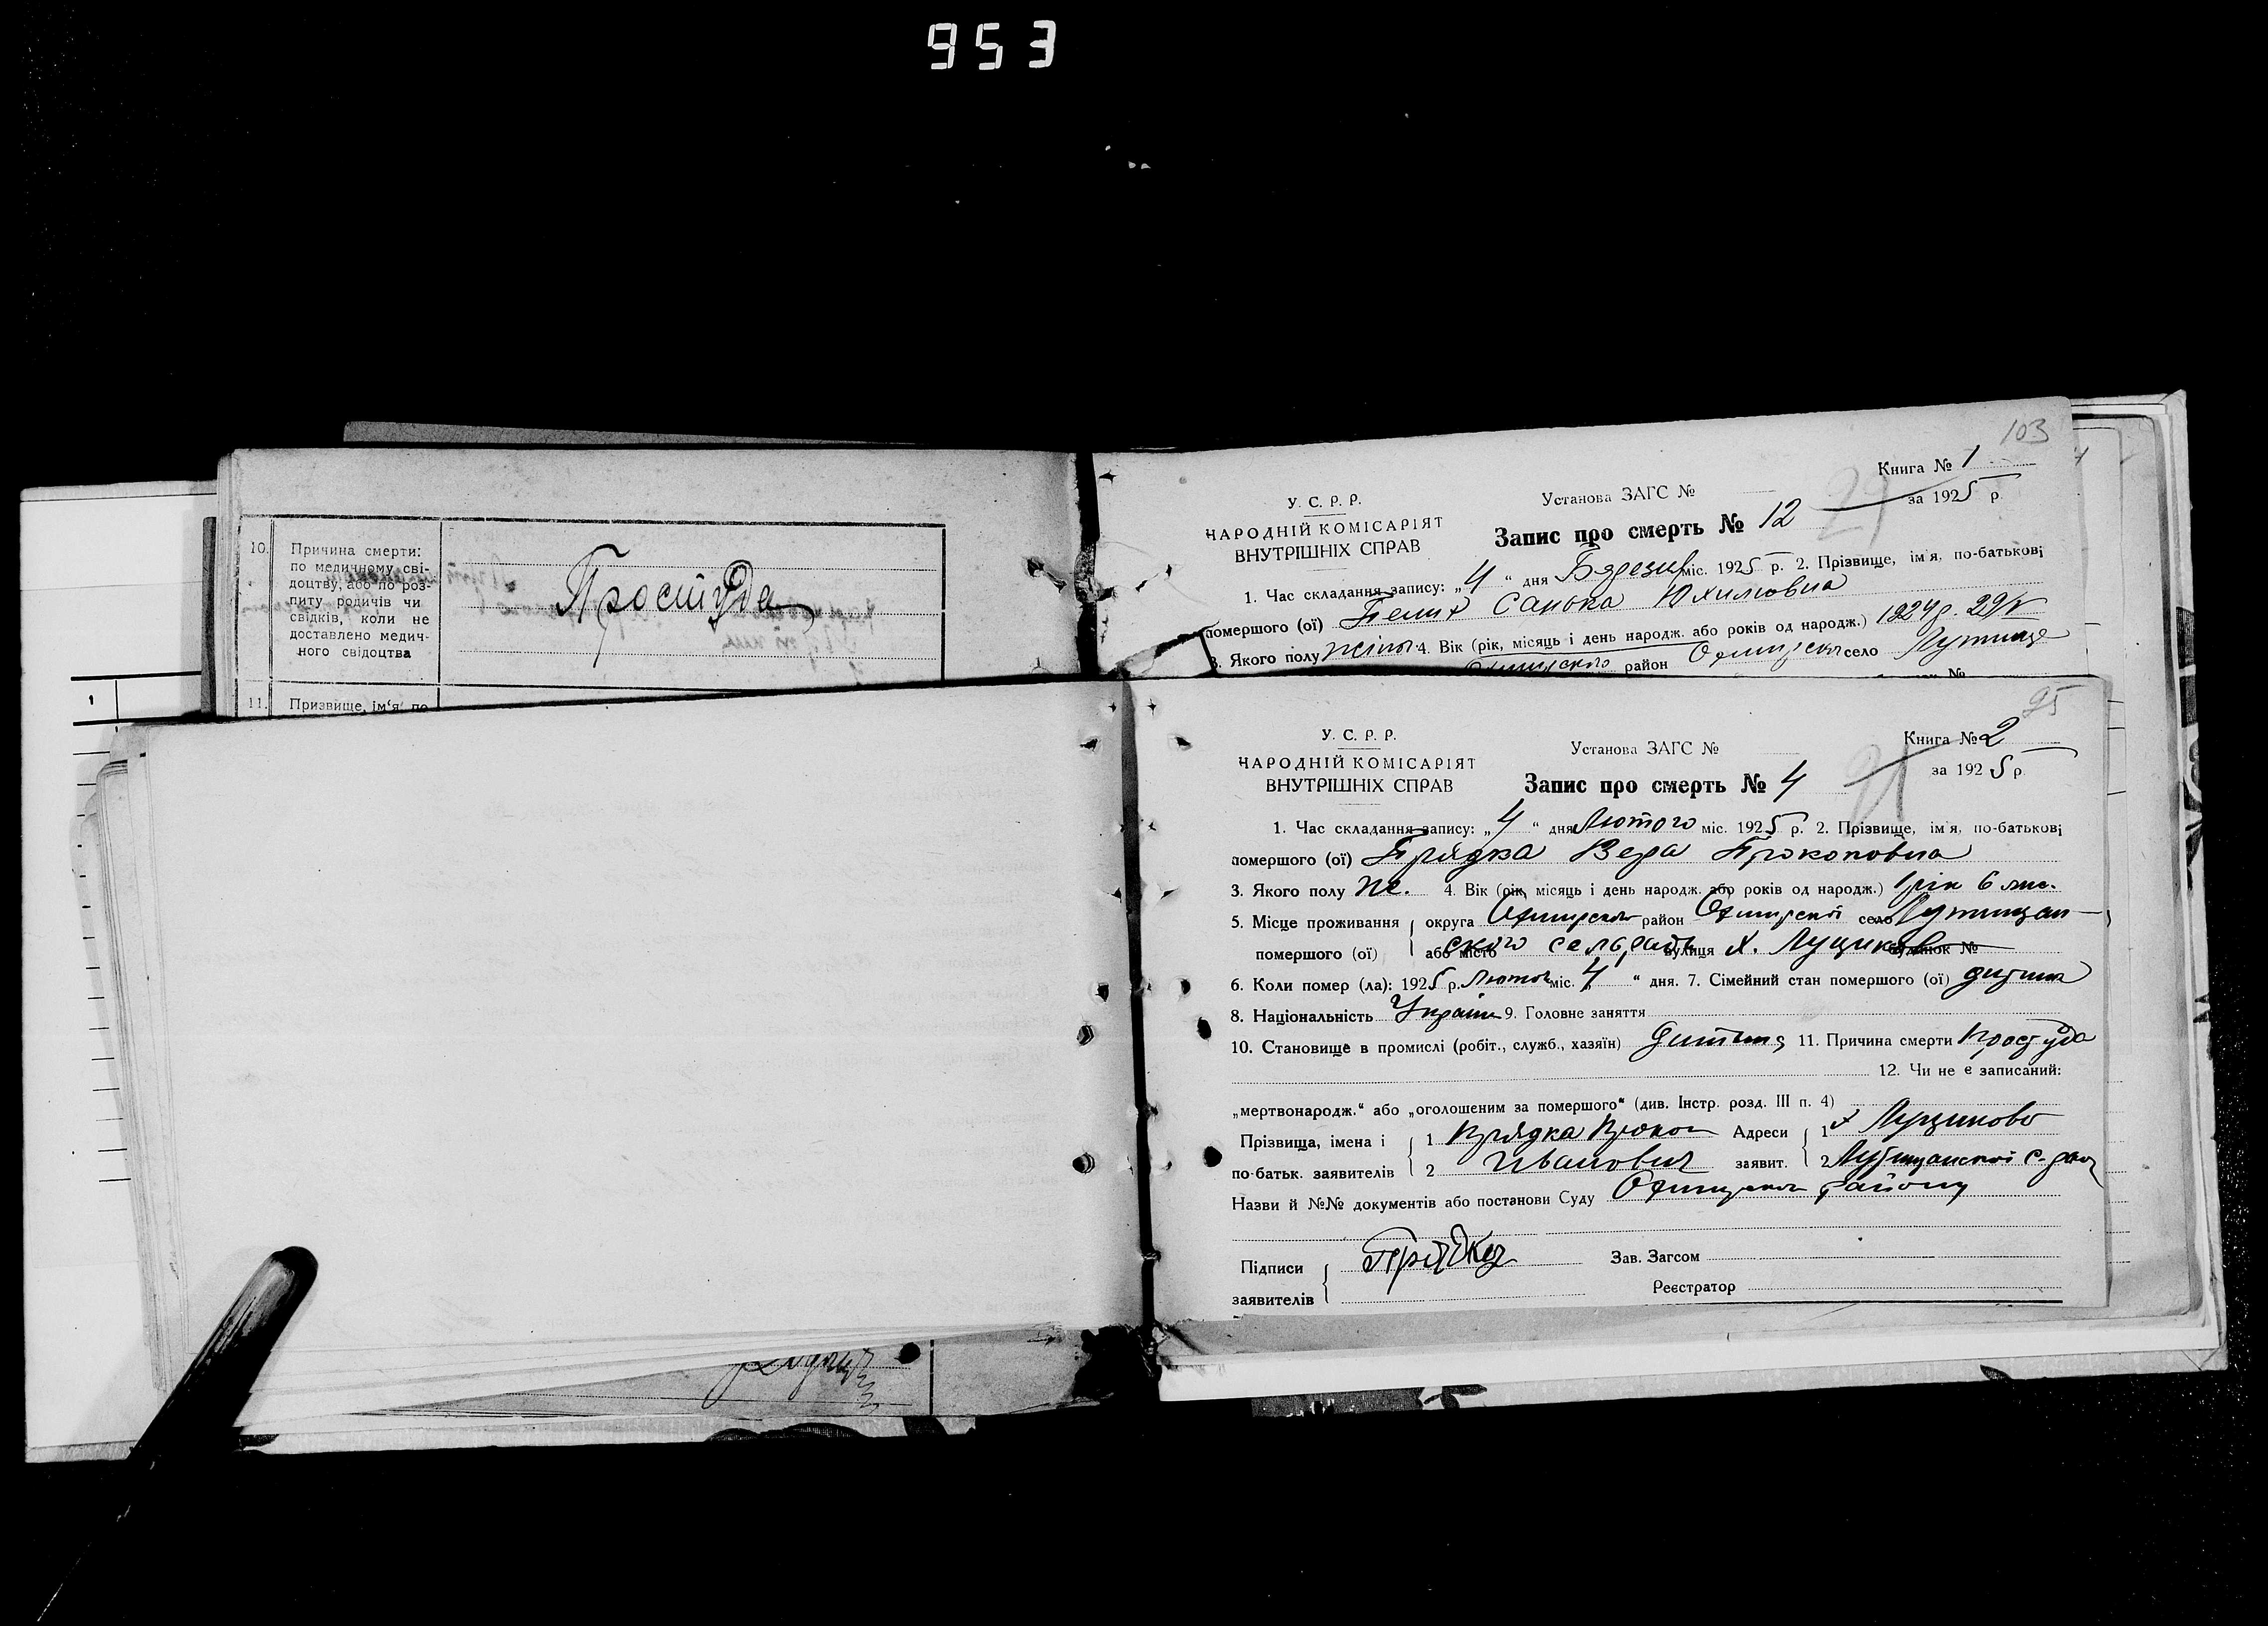 953
10. Причина смерти:
по медичному сві-
доцтву, або по роз-
питу родичів чи
свідків, коли не
доставлено медич-
ного свідоцтва
Простуда
11. Призвище, ім'я, по
103
Книга № 1
У. С. Р. Р.
Установа ЗАГС №
за 1925 р.
НАРОДНІЙ КОМІСАРІЯТ
ВНУТРІШНІХ СПРАВ
Запис про смерть № 12
1. Час складання запису: „4“ дня Березня міс. 1925 р. 2. Прізвище, ім'я, по-батькові
помершого (ої) Пелих Санька Юхимовна
3. Якого полу жіноч. 4. Вік (рік, місяць і день народж. або років од народж.) 1924 р. 29/V
район село Лутище
95
У. С. Р. Р.
Установа ЗАГС №
Книга № 2
НАРОДНІЙ КОМІСАРІЯТ
ВНУТРІШНІХ СПРАВ
Запис про смерть № 4
за 1925 р.
1. Час складання запису: „4“ дня Лютого міс. 1925 р. 2. Прізвище, ім'я, по-батькові
помершого (ої) Прядка Вера Прокоповна
3. Якого полу же. 4. Вік (рік, місяць і день народж. або років од народж.) 1 рік 6 мис.
5. Місце проживання округа район село Лутищан-
помершого (ої) або місто ского сельради вулиця х. Луциково будинок №
6. Коли помер (ла): 1925 р. Лютого міс. „4“ дня. 7. Сімейний стан помершого (ої) дитина
8. Національність Україн 9. Головне заняття
10. Становище в промислі (робіт., служб., хазяїн) Дитина 11. Причина смерти Простуда
12. Чи не є записаний:
„мертвонародж.“ або „оголошеним за помершого“ (див. Інстр. розд. III п. 4)
Прізвища, імена і 1 Прядка Прокоп Адреси 1 х Луциково
по-батьк. заявителів 2 Иванович заявит. 2 Лутищанской с-рад
Назви й №№ документів або постанови Суду району
Підписи Прядка Зав. Загсом
Реєстратор
заявителів